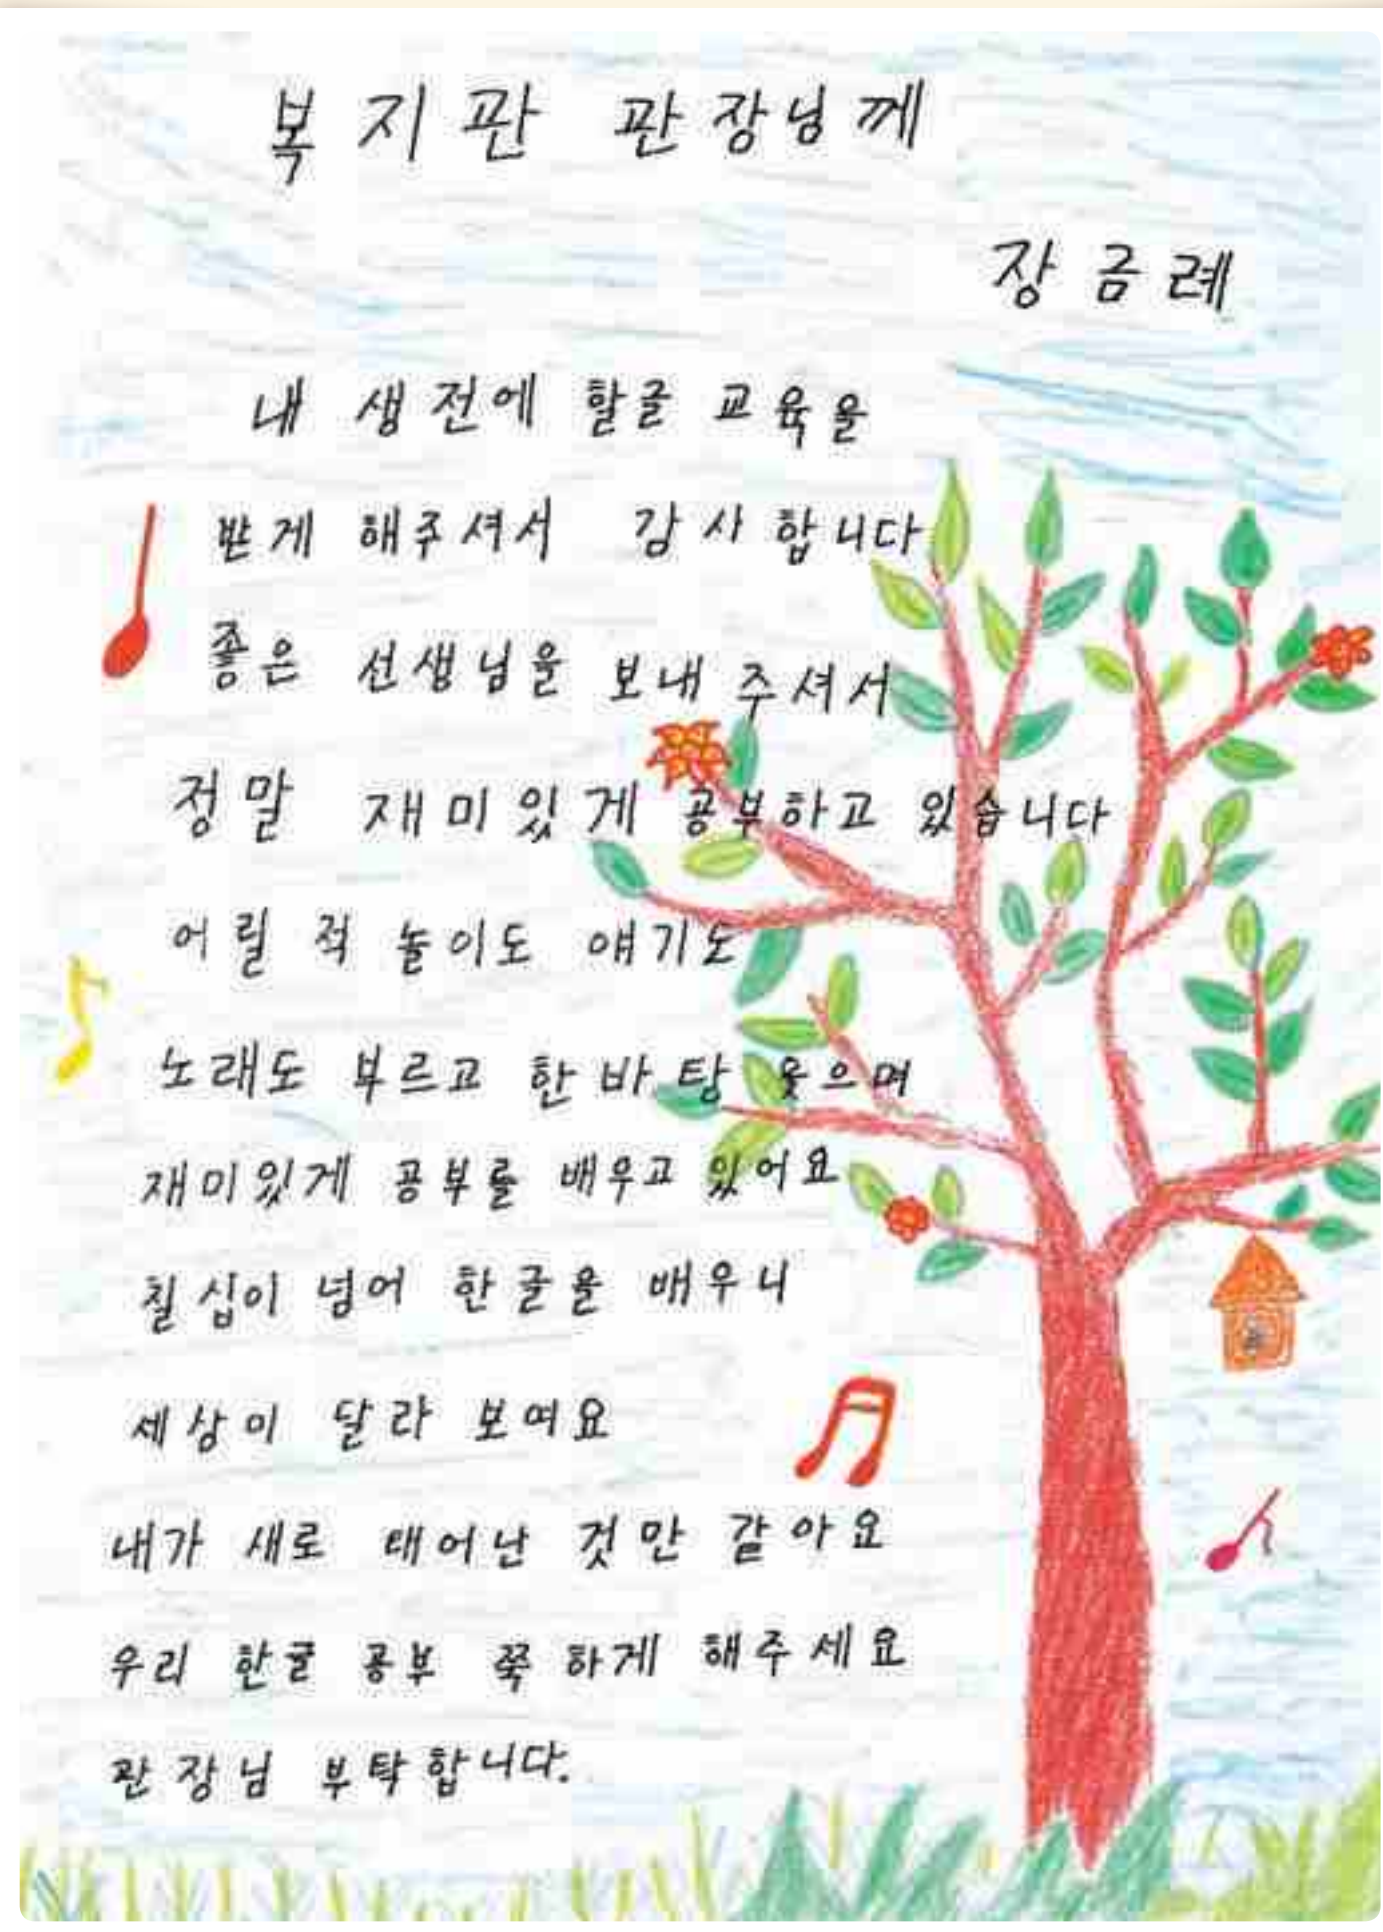 복지관 관장님께
장금례
내 생전에 할글 교육을
받게 해주셔서 감사합니다
좋은 선생님을 보내 주셔서
정말 재미있게 공부하고 있습니다
어릴 적 놀이도 얘기도
노래도 부르고 한바탕 웃으며
재미있게 공부를 배우고 있어요
칠십이 넘어 한글을 배우니
세상이 달라 보여요
내가 새로 태어난 것만 같아요
우리 한글 공부 쭉 하게 해주세요
관장님 부탁합니다.